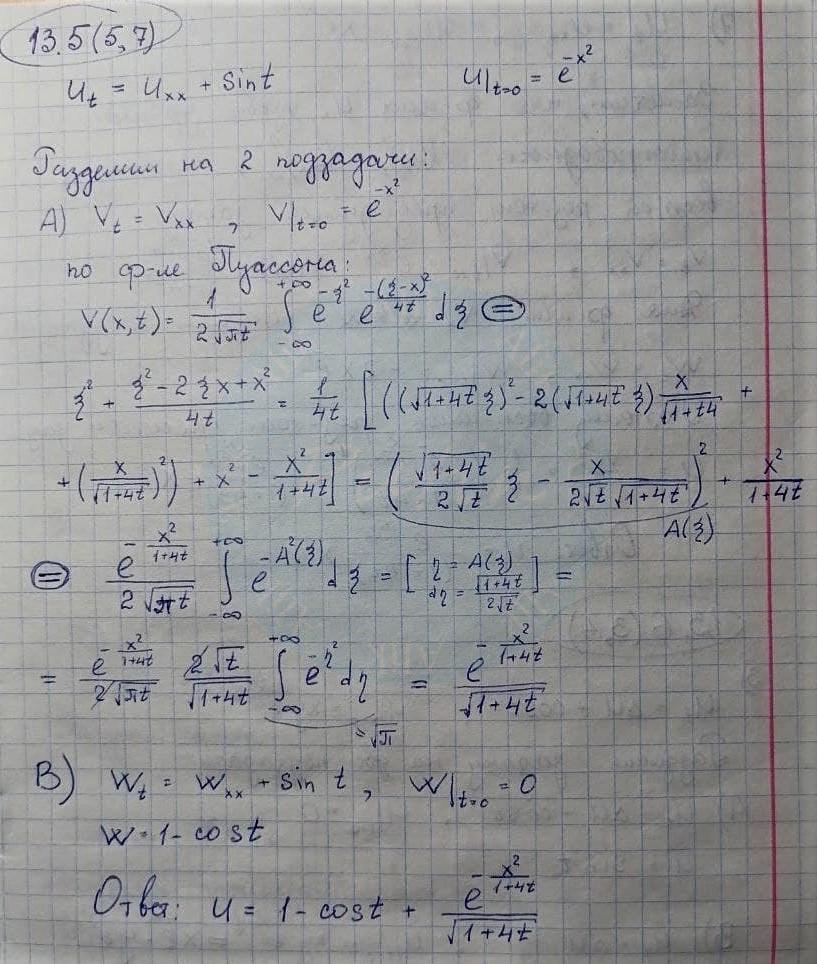 13.5(5,7)
u_t = u_xx + sin t    u|_{t=0} = e^{-x²}
Разделим на 2 подзадачи:
A) V_t = V_xx , V|_{t=0} = e^{-x²}
по ф-ле Пуассона:
V(x,t) = \frac{1}{2\sqrt{πt}} ∫_{-∞}^{+∞} e^{-ξ²} e^{-\frac{(ξ-x)²}{4t}} dξ ⊜
ξ² + \frac{ξ² - 2ξx + x²}{4t} = \frac{1}{4t} [ ((\sqrt{1+4t} ξ)² - 2(\sqrt{1+4t} ξ) \frac{x}{\sqrt{1+t4}} +
+ (\frac{x}{\sqrt{1+4t}})²) + x² - \frac{x²}{1+4t} ] = ( \frac{\sqrt{1+4t}}{2\sqrt{t}} ξ - \frac{x}{2\sqrt{t}\sqrt{1+4t}} )² + \frac{x²}{1+4t}
A(ξ)
⊜ \frac{e^{-\frac{x²}{1+4t}}}{2\sqrt{πt}} ∫_{-∞}^{+∞} e^{-A²(ξ)} dξ = [ η = A(ξ) dη = \frac{\sqrt{1+4t}}{2\sqrt{t}} ] =
= \frac{e^{-\frac{x²}{1+4t}}}{2\sqrt{πt}} \frac{2\sqrt{t}}{\sqrt{1+4t}} ∫_{-∞}^{+∞} e^{-η²} dη = \frac{e^{-\frac{x²}{1+4t}}}{\sqrt{1+4t}}
= \sqrt{π}
B) W_t = W_xx + sin t , W|_{t=0} = 0
W = 1 - cos t
Ответ: u = 1 - cos t + \frac{e^{-\frac{x²}{1+4t}}}{\sqrt{1+4t}}